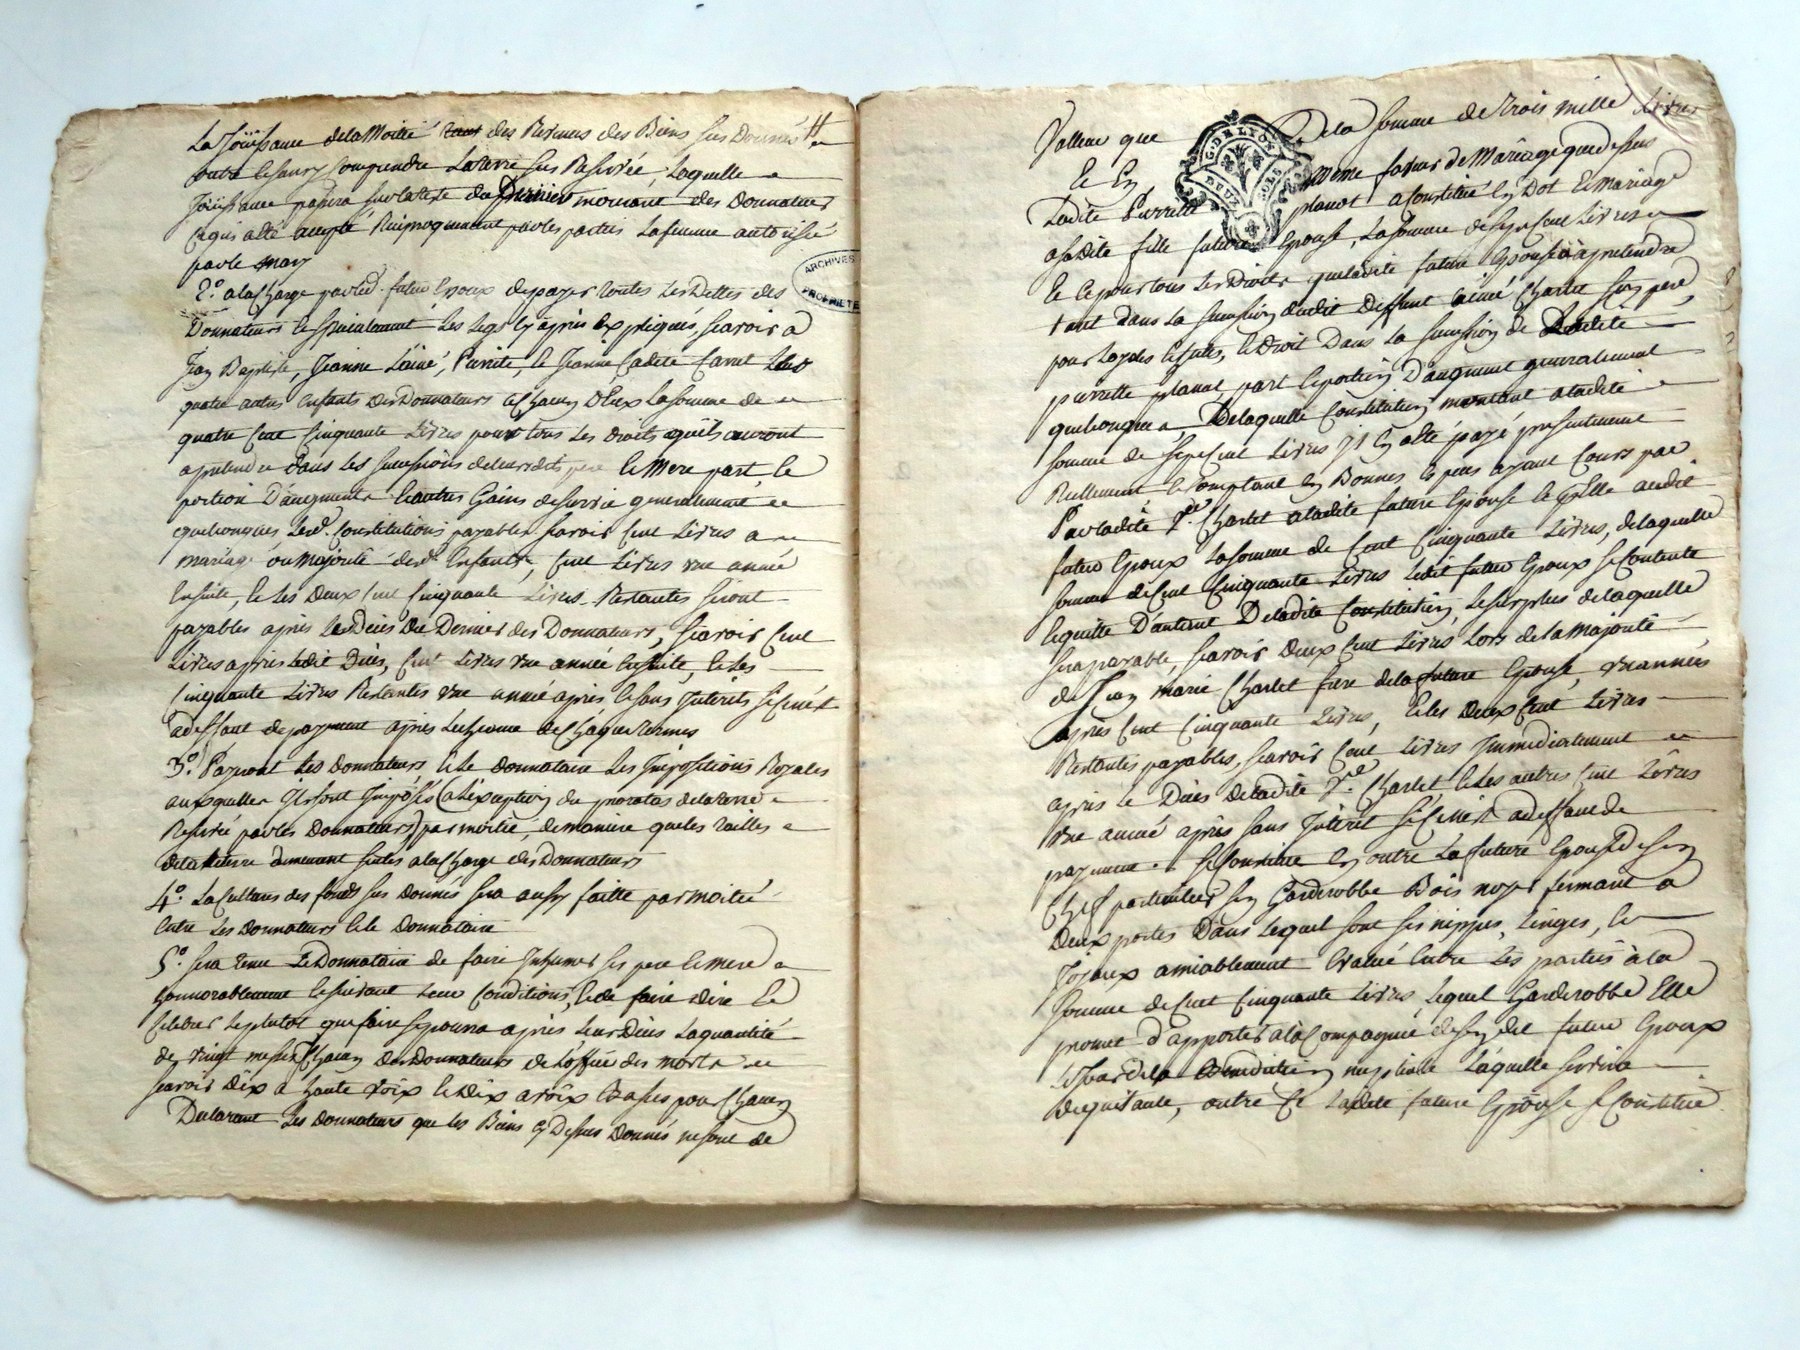 La Joüissance de la Moitié des Revenus des Biens sus Donnés
outre et sans y comprendre La terre sus Reservée, Laquelle
Joüissance passera sur la teste du Dernier mourant des Donnateurs
ce qui a été accepté Réciproquement par les parties La femme autorisée
par le mary
2.° a la Charge par led. futur Epoux de payer toutes Les Dettes des
Donnateurs et spécialement Les Legs cy après Expliqués, scavoir à
Jean Baptiste, Jeanne L'ainé, Pierrette, et Jeanne Cadete Carret
quatre autres enfants des Donnateurs a Chacun d'Eux La somme de
quatre Cent Cinquante Livres pour tous Les Droits quils auront
a pretendre Dans Les successions de leursdits pere et Mere part, et
portion D'augment et autres Gains de survie generalement
quelconques Lesd. Constitutions payables scavoir Cent Livres a
mariage ou Majorité desd. Enfants, Cent Livres une année
Ensuite, et Les Deux Cent Cinquante Livres Restantes seront
payables après Le Décès du Dernier des Donnateurs, scavoir Cent
Livres après Ledit Décès, Cent Livres une année Ensuite, et Les
Cinquante Livres Restantes une année après, et sans Interets si ce n'est
a deffaut de payement après L'echeance de Chaque termes
3.° Payeront Les Donnateurs et Le Donnataire Les Impositions Royales
auxquelles Ils sont Imposés (a L'exception du prorata de la terre
Reservée par les Donnateurs) par moitié, de maniere que les tailles
de la terre demeurent seules a la Charge des Donnateurs
4.° La Culture des fonds sus donnés sera aussy faitte par moitié
Entre Les Donnateurs et le Donnataire
5.° sera tenu Le Donnataire de faire Inhumer ses pere et mere
honnorablement et suivant Leur Conditions, et de faire dire et
Celebrer Le plutot que faire se pourra après Leur Décès La quantité
de vingt messes Chacun des Donnateurs de L'office des morts
scavoir Dix a haute voix et Dix a voix Basses pour Chacun
Declarant Les Donnateurs que les Biens cy Dessus Donnés ne sont de
Valleur que De la somme de trois mille Livres
Et En même faveur de Mariage que dessus
Ladite Pierrette planat a Constitué En Dot et Mariage
a sadite fille future Epouse, La somme de sept Cent Livres
et ce pour tous Les Droits que ladite future Epouse a a pretendre
tant dans La succession dudit Deffunt Charlet son pere,
pour Loyales Echutes, et Droit Dans La succession de Ladite
pierrette planat part et portion D'augment generalement
quelconques De laquelle Constitution montant a ladite
somme de sept Cent Livres Il En a été payé presentement
Reellement et Comptant En Bonnes Especes ayant Cours par
Par ladite Charlet a ladite future Epouse et par Elle audit
futur Epoux La somme de Cent Cinquante Livres, de laquelle
somme de Cent Cinquante Livres Ledit futur Epoux se Contente
et quitte D'autant De ladite Constitution, Le surplus de laquelle
sera payable, scavoir Deux Cent Livres Lors de la Majorité
de Jean Marie Charlet frere de la future Epouse, une année
après Cent Cinquante Livres, et les Deux Cent Livres
Restantes payables, scavoir Cent Livres Immediatement
après Le Décès de ladite Charlet et Les autres Cent Livres
une année après sans Interet si ce n'est a deffaut de
payement. se Constitue En outre La future Epouse De son
Chef particulier son Garderobbe Bois noyer fermant a
Deux portes Dans Lequel sont ses nippes, Linges, et
Joyaux amiablement Evalué Entre Les parties à la
somme de Cent Cinquante Livres Lequel Garderobbe Elle
promet d'apporter a la Compagnie de son dit futur Epoux
Le jour de la Benediction nuptiale Laquelle servira
de quittance, outre Ce Ladite future Epouse se Constitue
ARCHIVES
PROPRIETE
G. DE LYON
DEUX SOLS